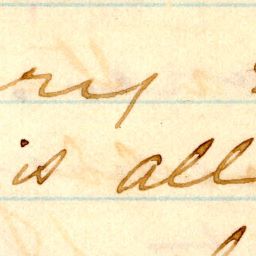 ry
is all